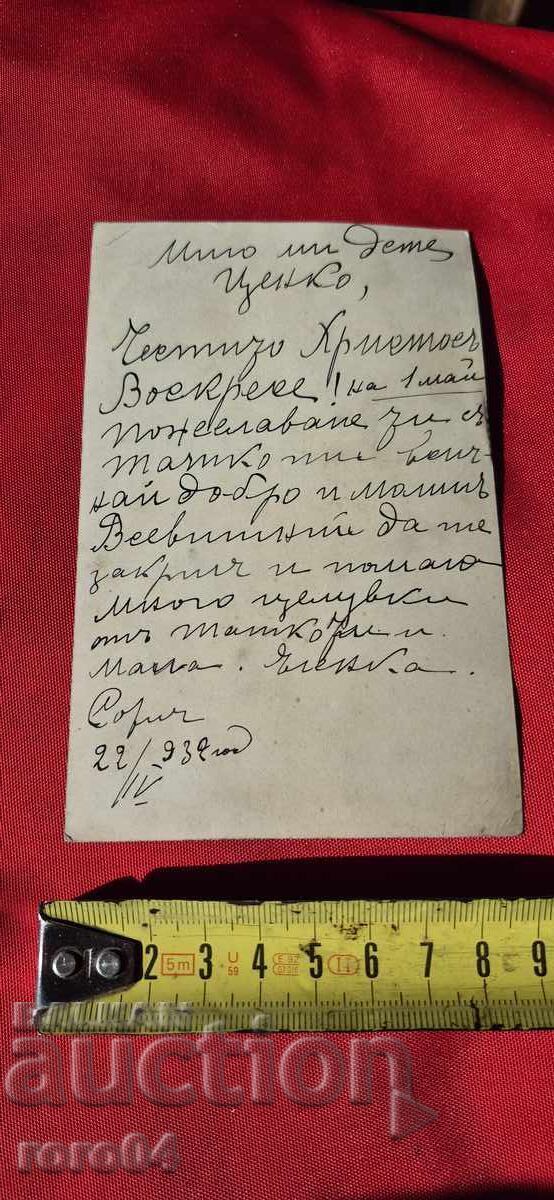 Мило ми дете
Ценко,
Честито Христосъ
Воскресе! на 1 май
Пожелаваме
Татко ти
най добро и
Всевишний да те
закриля и помага
много целувки
отъ Татко ти и
мама. Еленка.
София
22/IV 932 год
2 5m 3 U 59 4 5 II 6 7 8 9
BALKAN
auction
roro04